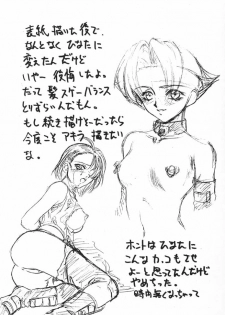 表紙、描いた後で
なんとなく ひなたに
変えたんだけど
いやー 後悔したよ。
だって 髪 スゲーバランス
とりずらいんだもん。
もし続き描けとーだったら
今度こそ アキラ 描きたい
な。
ホントは ひなたに
こんなカッコもさせ
よーと思ってたんだけど
やめちった。
時間無くなっちゃって